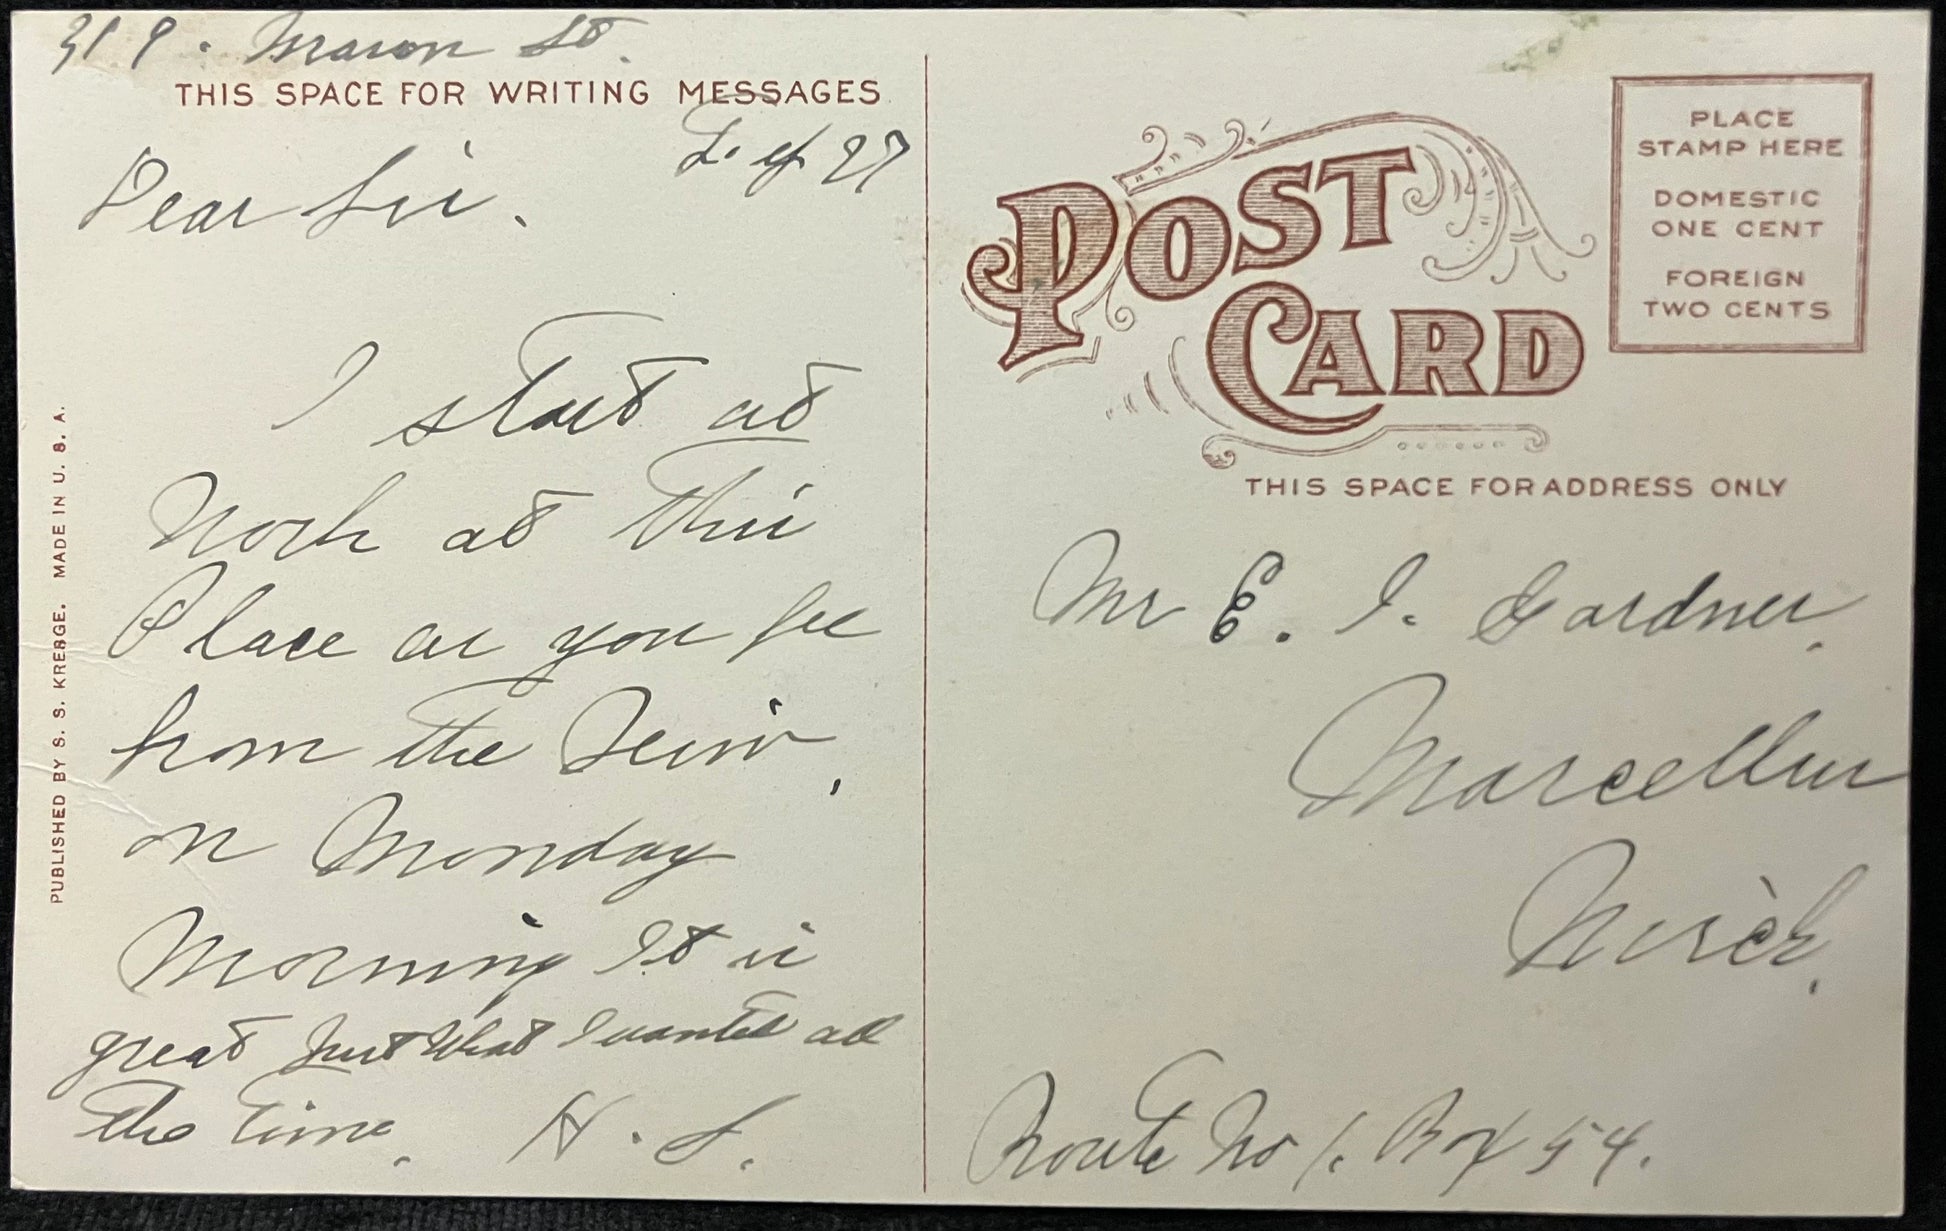 319. Mason St.
THIS SPACE FOR WRITING MESSAGES
27
Dear Sir.
I start at
Work at this
Place as you see
from the view,
on Monday
Morning It is
great Just What I wanted all
the time. H. S.
PUBLISHED BY S. S. KRESGE. MADE IN U. S. A.
POST
CARD
PLACE
STAMP HERE
DOMESTIC
ONE CENT
FOREIGN
TWO CENTS
THIS SPACE FOR ADDRESS ONLY
Mr E. I. Gardner,
Marcellus
Mich.
Route No 1. Box 54.